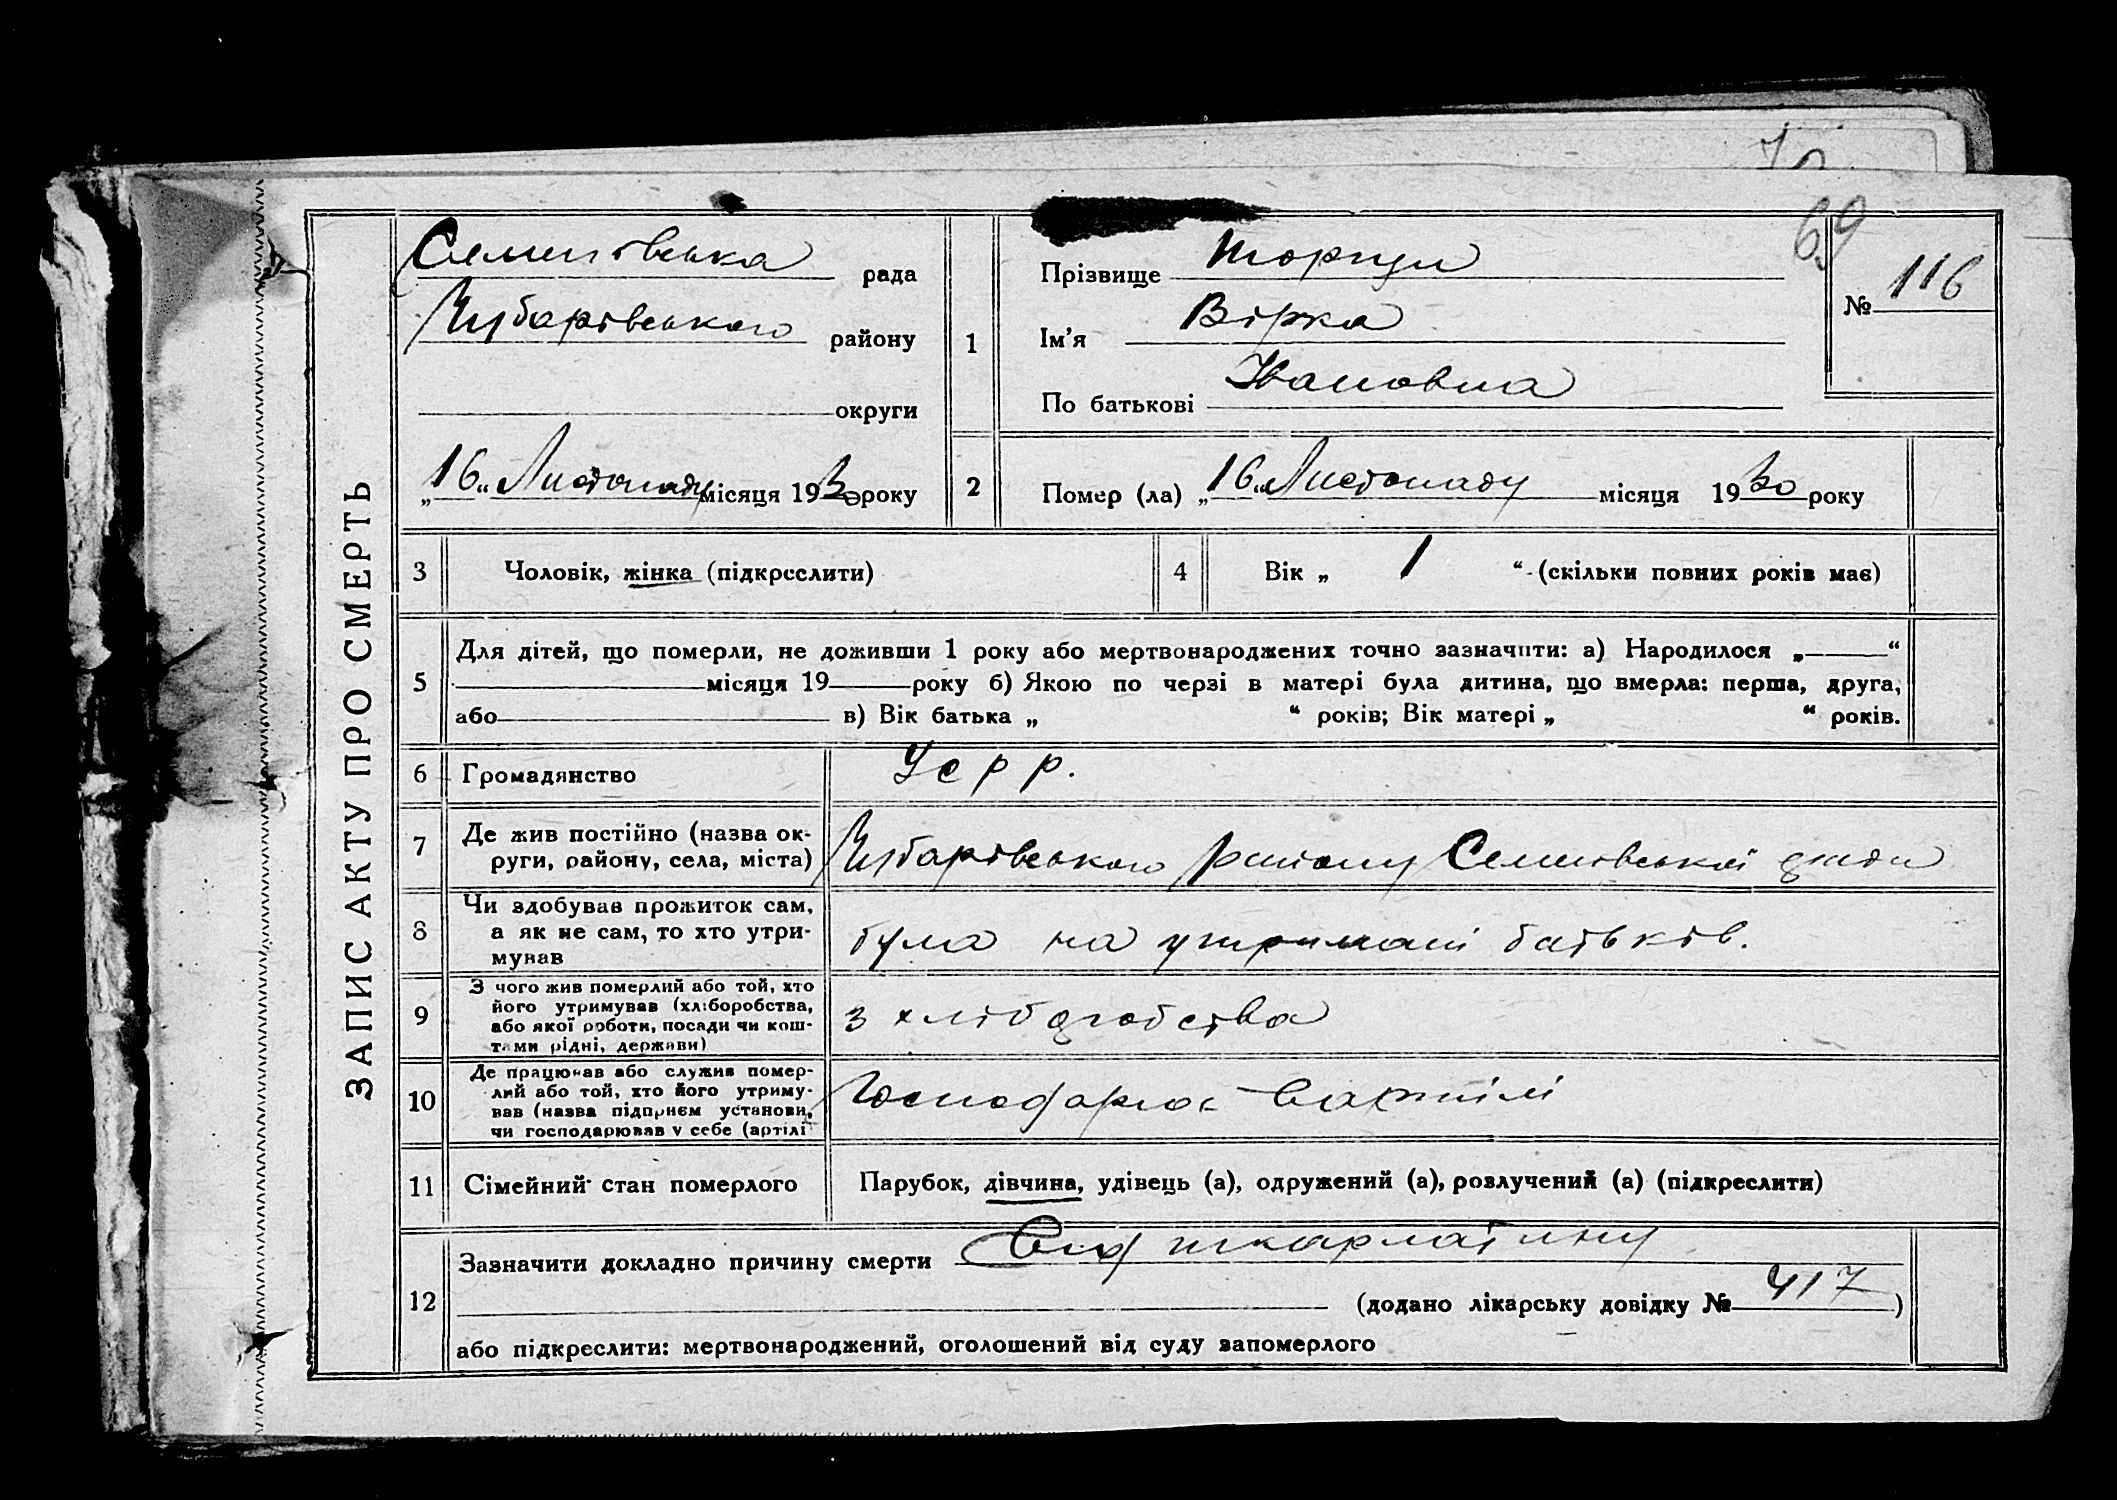 70
69
ЗАПИС АКТУ ПРО СМЕРТЬ
Семенівська рада
Чубарівського району
округи
„16“ Листопаду місяця 1930 року
1
Прізвище
Ім'я Вірка
По батькові Івановна
№ 116
2 Помер (ла) „16“ Листопаду місяця 1930 року
3 Чоловік, жінка (підкреслити)
4 Вік „ 1 “ (скільки повних років має)
5 Для дітей, що померли, не доживши 1 року або мертвонароджених точно зазначити: а) Народилося „ “
місяця 19 року б) Якою по черзі в матері була дитина, що вмерла: перша, друга,
або в) Вік батька „ “ років; Вік матері „ “ років.
6 Громадянство Усрр.
7 Де жив постійно (назва ок-
руги, району, села, міста) Чубарівського району Семенівської ради
8 Чи здобував прожиток сам,
а як не сам, то хто утри-
мував була на утримані батьків.
9 З чого жив померлий або той, хто
його утримував (хліборобства,
або якої роботи, посади чи кош-
тами рідні, держави) з хліборобства
10 Де працював або служив помер-
лий або той, хто його утриму-
вав (назва підприєм установи,
чи господарював у себе (артілі Господарює вартілі
11 Сімейний стан померлого Парубок, дівчина, удівець (а), одружений (а), розлучений (а) (підкреслити)
12 Зазначити докладно причину смерти Від шкарлатину
(додано лікарську довідку № 417)
або підкреслити: мертвонароджений, оголошений від суду запомерлого